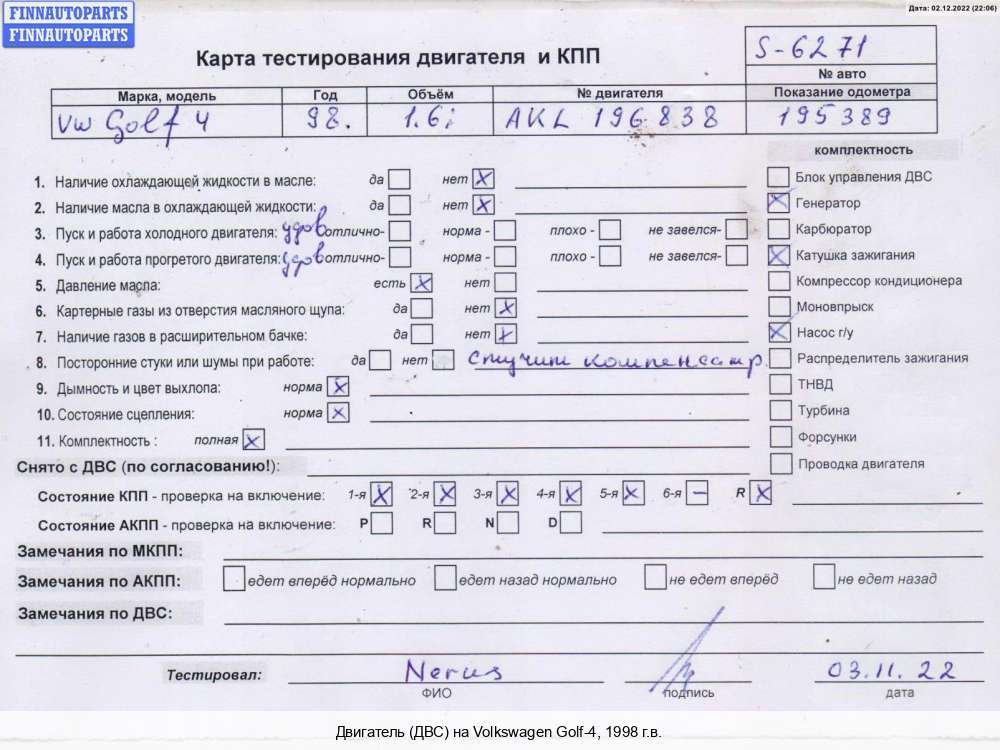 FINNAUTOPARTS
FINNAUTOPARTS
Дата: 02.12.2022 (22:06)
Карта тестирования двигателя и КПП
S-6271
№ авто
Марка, модель Год Объём № двигателя Показание одометра
VW Golf 4 98. 1.6i AKL 196 838 195389
комплектность
1. Наличие охлаждающей жидкости в масле: да нет X
Блок управления ДВС
2. Наличие масла в охлаждающей жидкости: да нет X
X Генератор
3. Пуск и работа холодного двигателя: удов отлично- норма - плохо - не завелся-
Карбюратор
4. Пуск и работа прогретого двигателя: удов отлично- норма - плохо - не завелся-
X Катушка зажигания
5. Давление масла: есть X нет
Компрессор кондиционера
6. Картерные газы из отверстия масляного щупа: да нет X
Моновпрыск
7. Наличие газов в расширительном бачке: да нет X
X Насос г/у
8. Посторонние стуки или шумы при работе: да нет стучит компенсатр.
Распределитель зажигания
9. Дымность и цвет выхлопа: норма X
ТНВД
10. Состояние сцепления: норма X
Турбина
11. Комплектность : полная X
Форсунки
Снято с ДВС (по согласованию!):
Проводка двигателя
Состояние КПП - проверка на включение: 1-я X 2-я X 3-я X 4-я X 5-я X 6-я – R X
Состояние АКПП - проверка на включение: P R N D
Замечания по МКПП:
Замечания по АКПП: едет вперёд нормально едет назад нормально не едет вперёд не едет назад
Замечания по ДВС:
Тестировал: Nerus 03.11.22
ФИО подпись дата
Двигатель (ДВС) на Volkswagen Golf-4, 1998 г.в.